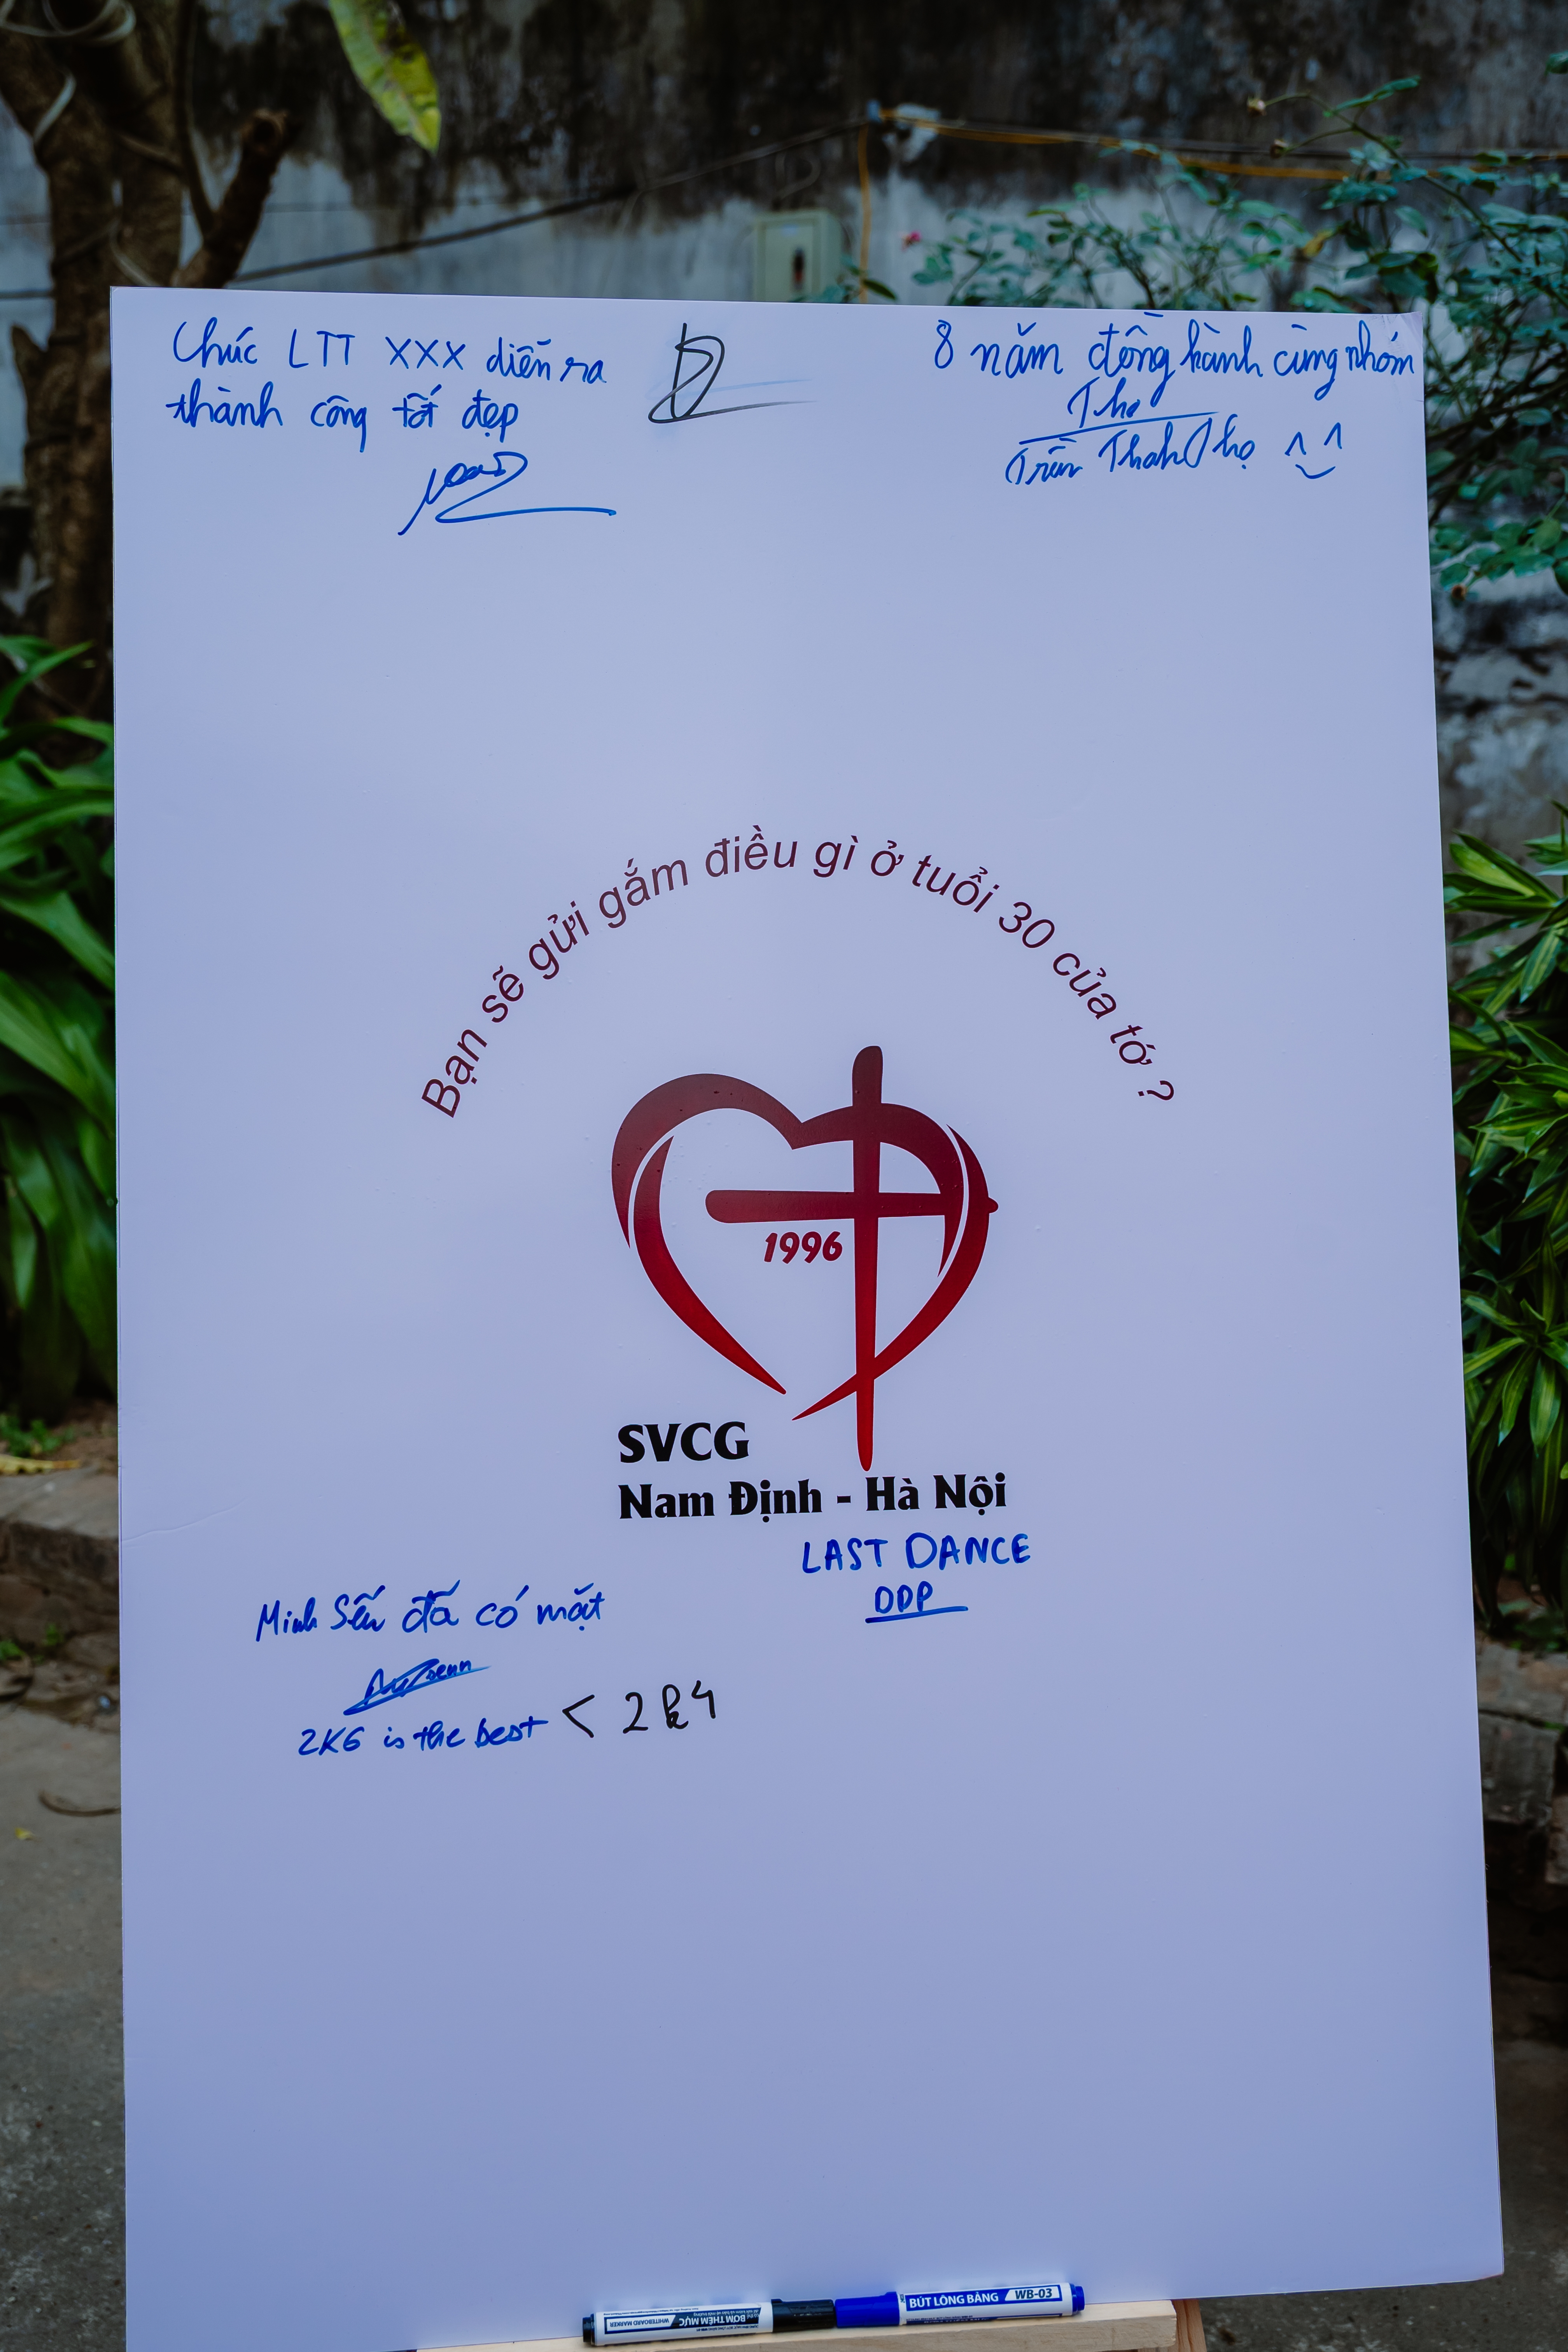 Chúc LTT XXX diễn ra
thành công tốt đẹp
8 năm đồng hành cùng nhóm
Thọ
Trần Thanh Thọ ^ ^
Bạn sẽ gửi gắm điều gì ở tuổi 30 của tớ ?
1996
SVCG
Nam Định - Hà Nội
LAST DANCE
DDP
Minh Sếu đã có mặt
2K6 is the best < 2k4
BƠM THÊM MỰC
WHITEBOARD MARKER
BÚT LÔNG BẢNG WB-03